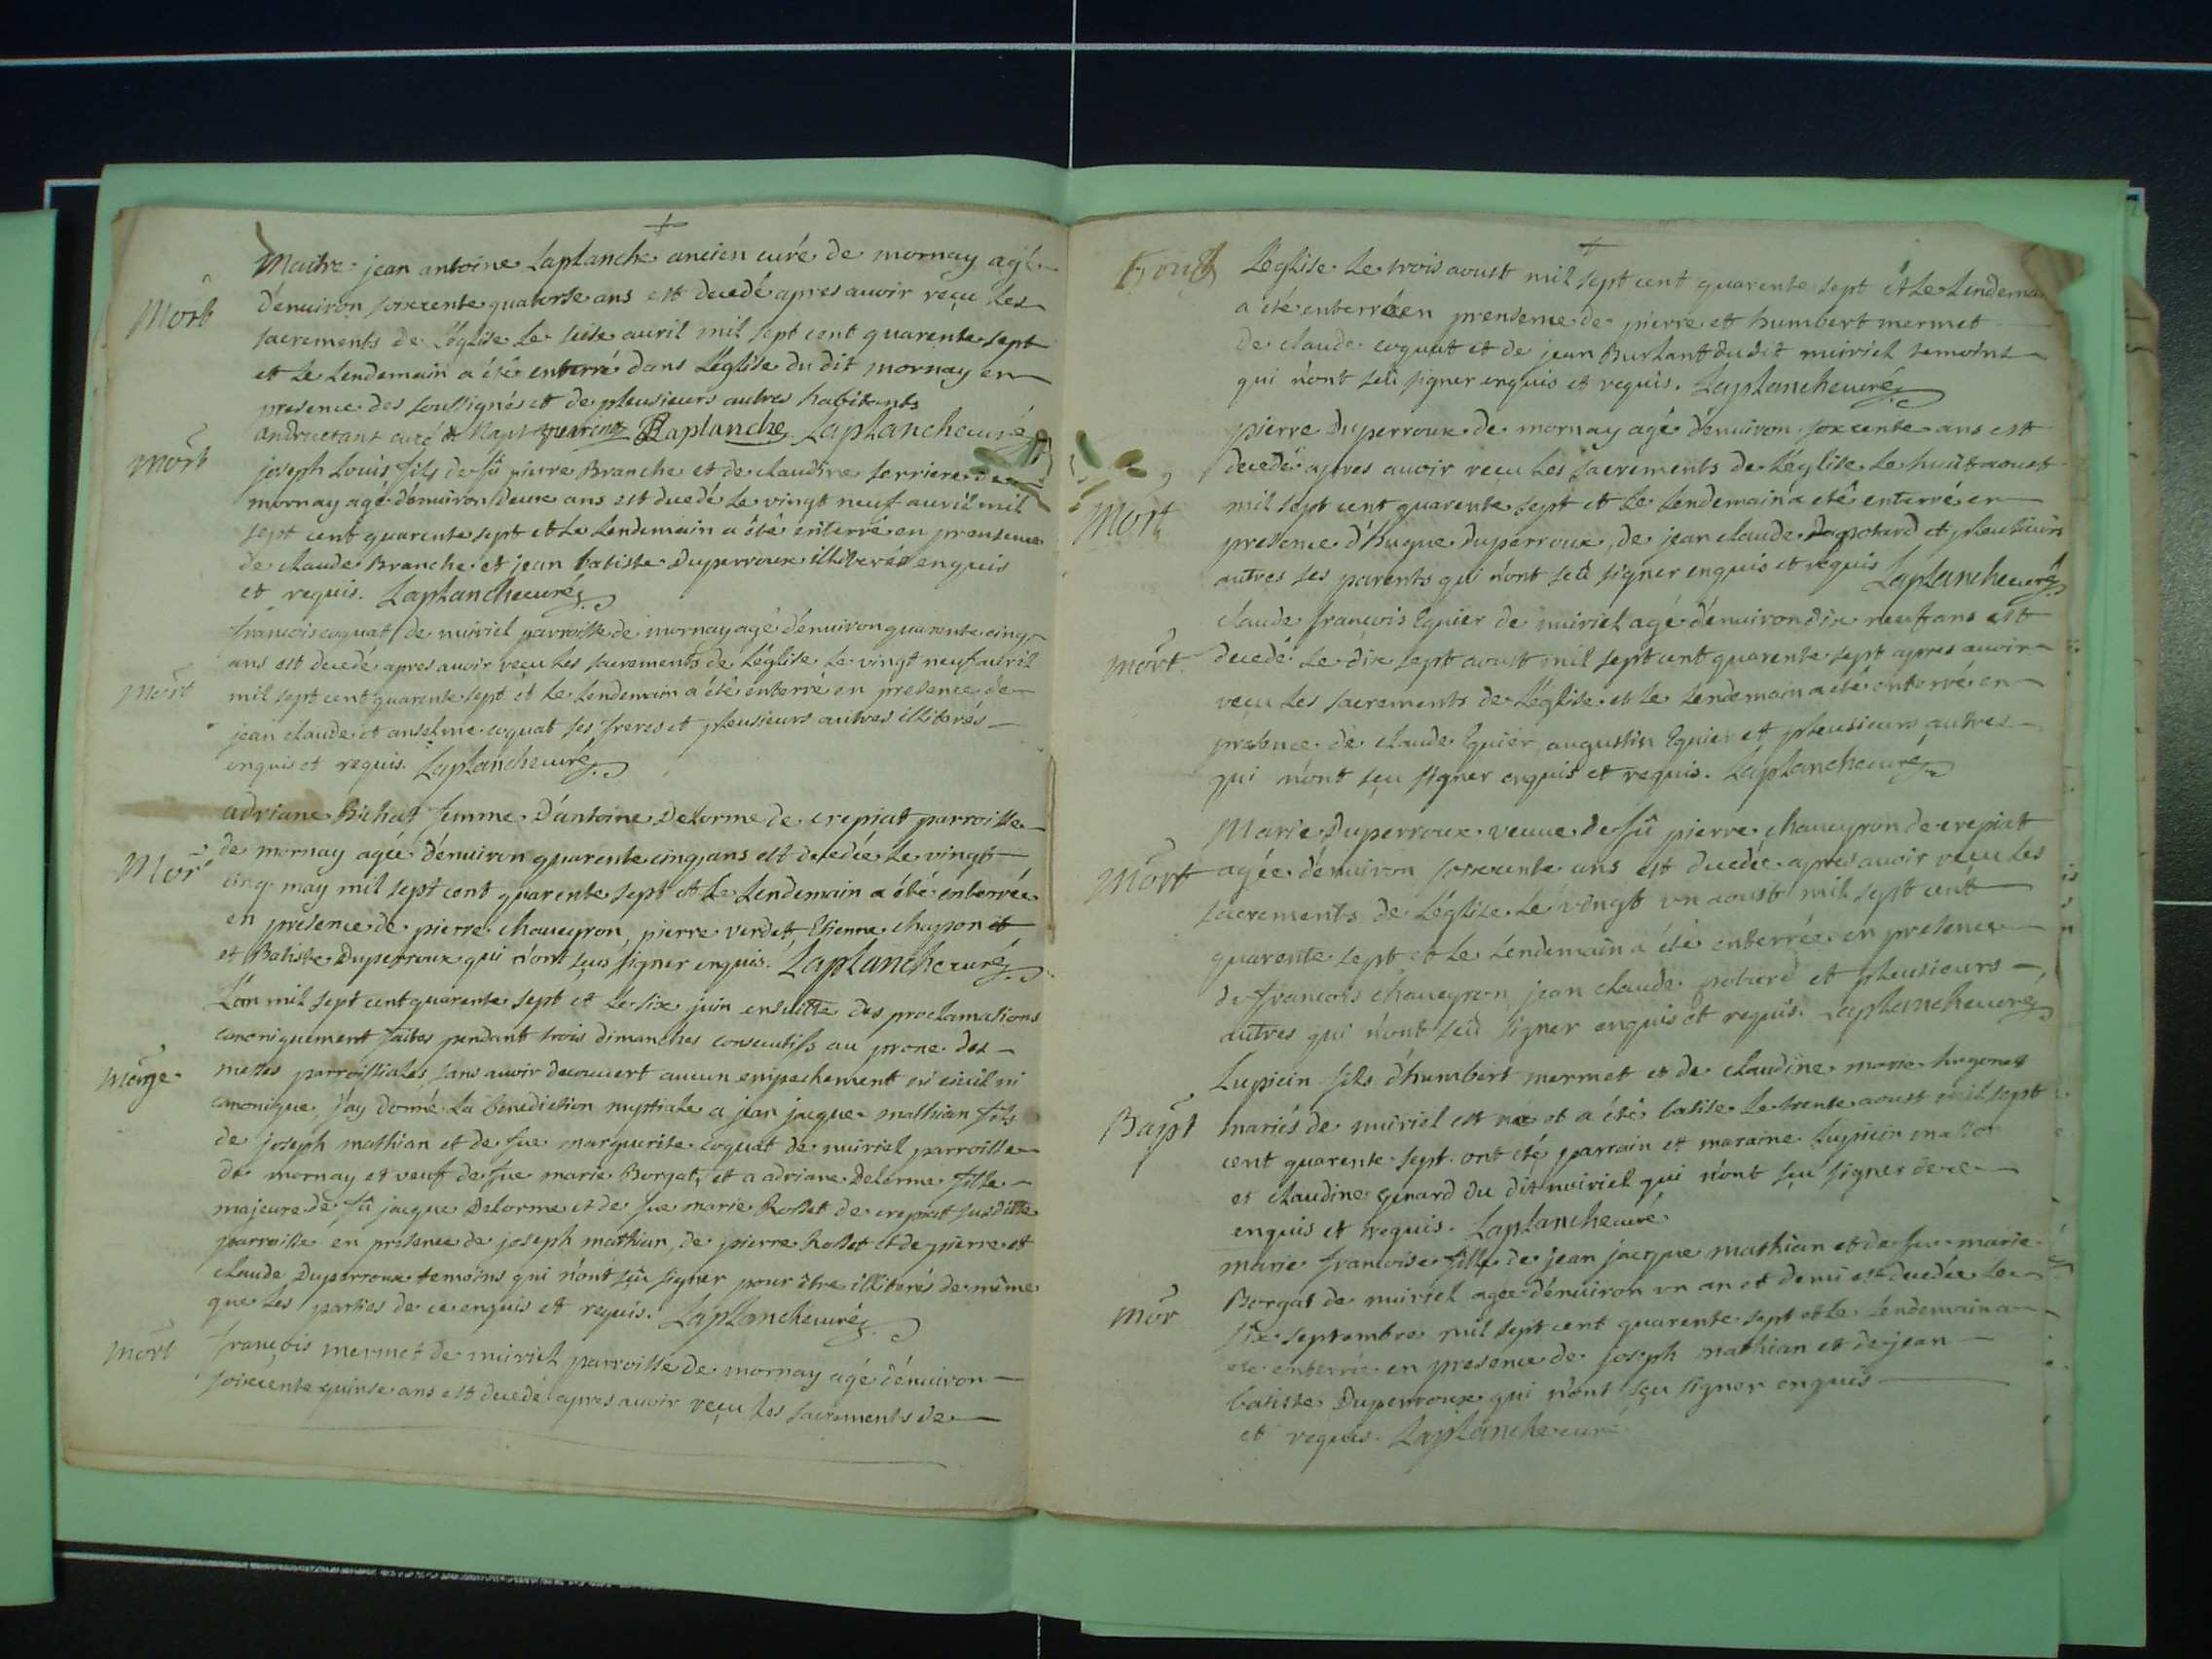 Maitre jean antoine Laplanche ancien curé de mornay agé
Mort
d'enuiron soixcente quatorse ans est decedé apres auoir reçu les
sacrements de L'église le seise auril mil sept cent quarente sept
et le lendemain a été enterré dans L'église du dit mornay en
presence des soussignés et de pleusieurs autres habitents
curé Laplanche Laplanche curé
mort
joseph Louis fils de fû pierre Branche et de claudine ferriere de
mornay agé d'enuiron deux ans est decedé le vingt neuf auril mil
sept cent quarente sept et le lendemain a été enterré en prensence
de claude Branche et jean batiste Duperroux illiterés enquis
et requis. Laplanche curé
françois coquat de nuiriel parroisse de mornay agé d'enuiron quarente cinq
ans est decedé apres auoir reçu les sacrements de L'église le vingt neuf auril
mort
mil sept cent quarente sept et le lendemain a été enterré en presence de
jean claude et anselme coquat ses freres et pleusieurs autres illiterés
enquis et requis. Laplanche curé
adriane Bichat femme d'antoine Delorme de crepiat parroisse
Mor
de mornay agée d'enuiron quarente cinq ans est decedée le vingt
cinq may mil sept cent quarente sept et le lendemain a été enterrée
en présence de pierre chaueyron pierre verdet Etienne et
et Batiste Duperroux qui n'ont seus signer enquis. Laplanche curé
L'an mil sept cent quarente sept et le six juin ensuitte des proclamations
canoniquement faites pendant trois dimanches consecutifs au prone des
marge
messes parroissiales sans auoir decouuert aucun empechement ni ciuil ni
canonique, j'ay donné la benediction nuptiale a jean jacque mathian fils
de joseph mathian et de fue marguerite coquat de nuiriel parroisse
de mornay et veuf de fue marie Borgat, et a adriane Delorme fille
majeure de fû jacque Delorme et de fue marie Rosset de crepiat susditte
parroisse en présence de joseph mathian, de pierre Rosset et de pierre et
claude Duperroux temoins qui n'ont sçu signer pour être illiterés de même
que les parties de ce enquis et requis. Laplanche curé
mort
françois mermet de nuiriel parroisse de mornay agé d'enuiron
soixcente quinse ans est decedé apres auoir reçu les sacrements de
L'église le trois aoust mil sept cent quarente sept et le lendemain
a été enterré en prensence de pierre et humbert mermet
de claude coquat et de jean Burlant dudit nuiriel temoins
qui n'ont seû signer enquis et requis. Laplanche curé
pierre Duperroux de mornay agé d'enuiron soxcente ans est
decedé apres auoir reçu les sacrements de L'église le huit aoust
Mort
mil sept cent quarente sept et le lendemain a été enterré en
presence d'hugue Duperroux, de jean claude potard et pleusieurs
autres ses parents qui n'ont seû signer enquis et requis Laplanche curé
claude françois Eguier de nuiriel agé d'enuiron dix neuf ans est
mort
decedé le dix sept aoust mil sept cent quarente sept apres auoir
reçu les sacrements de L'église et le lendemain a été enterré en
présence de claude Eguier augustin Eguier et pleusieurs autres
qui n'ont sçu signer enquis et requis. Laplanche curé
Marie Duperroux veuue de fû pierre chaueyron de crepiat
Mort
agée d'enuiron soixcente ans est decedée apres auoir reçu les
sacrements de L'église le vingt vn aoust mil sept cent
quarente sept et le lendemain a été enterrée en presence
de francois chaueyron jean claude potard et pleusieurs
autres qui n'ont seû signer enquis et requis. Laplanche curé
Lupicin fils d'humbert mermet et de claudine marie hugonet
Bapt
mariés de nuiriel est né et a été batisé le trente aoust mil sept
cent quarente sept. ont été parrain et maraine Lupicin
et claudine du dit nuiriel qui n'ont sçu signer de ce
enquis et requis. Laplanche curé
marie francoise fille de jean jacque mathian et de fue marie
mor
Borgat de nuiriel agée d'enuiron vn an et demi est decedée le
six septembre mil sept cent quarente sept et le lendemain a
été enterrée en presence de joseph mathian et de jean
batiste Duperroux qui n'ont sçu signer enquis
et requis. Laplanche curé